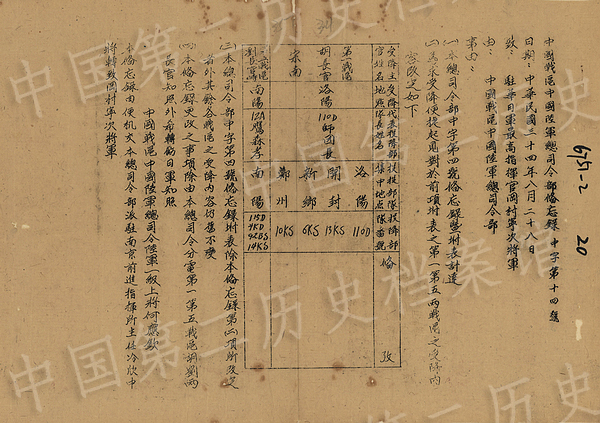 中國戰區中國陸軍總司令部備忘錄 中字第十四號
日期：中華民國三十四年八月二十八日
致：駐華日軍最高指揮官岡村寧次將軍
由：中國戰區中國陸軍總司令部
事由：
(一)本總司令部中字第四號備忘錄暨附表計達
(二)為受降便捷起見對於前項附表之第一第五兩戰區之受降內
容改定如下
受降主官姓名
受降地點
代表投降部隊長姓名
投降部隊集中地點
投降部隊番號
備 考
第一戰區
胡長官
宗南
洛陽
110D師團長
洛陽
開封
新鄉
鄭州
110D
13KS
6KS
10KS
第五戰區
劉長官
南陽
12A鷹森孝
南陽
115D
4KD
92BS
14KS
(三)本總司令部中字第四號備忘錄附表除本備忘錄第(二)項所改定
者外其餘各戰區之受降內容仍舊不變
(四)本備忘錄更改之事項除由本總司令分電第一第五戰區胡劉兩
長官知照外希轉飭日軍知照
中國戰區中國陸軍總司令陸軍一級上將何應欽
本備忘錄由便機交本總司令部派駐南京前進指揮所主任冷欣中
將轉致岡村寧次將軍
675-2
20
中国第二历史档案馆